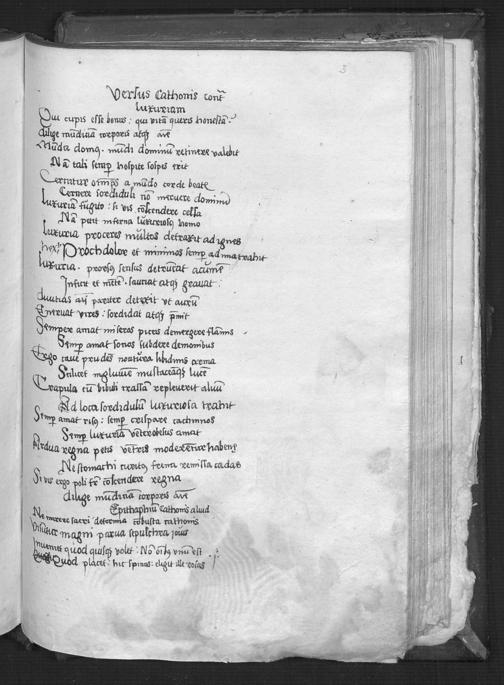 3
Versus Cathonis cont͛
luxuriam
Qui cupis esse bonus : qui vitā queris honestā
dilige mūdiciā corporis atqȝ aīe
Mūda domꝯ mūdi dominū retinere valebit
Nā tali semꝑ hospite sospis erit
Cernitur a mūdo corde beate
Cernere sordiduli nō meruere dominū
luxuriā fugito : si vis cōscendere celsa
Nā petit inferna luxuriosꝯ homo
luxuria proceres multos detraxit ad ignes
Prochdolor et minimos semꝑ ad ima trahit
luxuria sensus detruncat acumē
Inficit et mētē sauciat atqȝ gravat
divitias aīs pariter detraxit ut aurū
Enervat vires : sordidat atqȝ ꝑimit
Sempere amat miseros picis demergere flāmis
Semꝑ amat sonos subdere demonibus
Ergo cave prudēs libidinis arma
Scilicet ingluviem lucē
Crapula cū bibuli crassā repleverit alvū
Ad loca sordidulū luxuriosa trahit
Semꝑ amat risꝯ : semꝑ crispare cachinnos
Semꝑ luxuriā amat
Ardua regna petis ventris moderetur habena
Ne stomachi frena remissa cadas
Si vis ergo poli cōscendere regna
dilige mūdiciā corporis aīe
Epithaphiū Cathonis aliud
Ne mirere sacri deformia cōbusta cathonis
Visuntur magni parva sepulchra jovis
Invenies quod quisqȝ velit : Nō oībꝯ unū est
Quod placet : hic spinas : eligit ille rosas